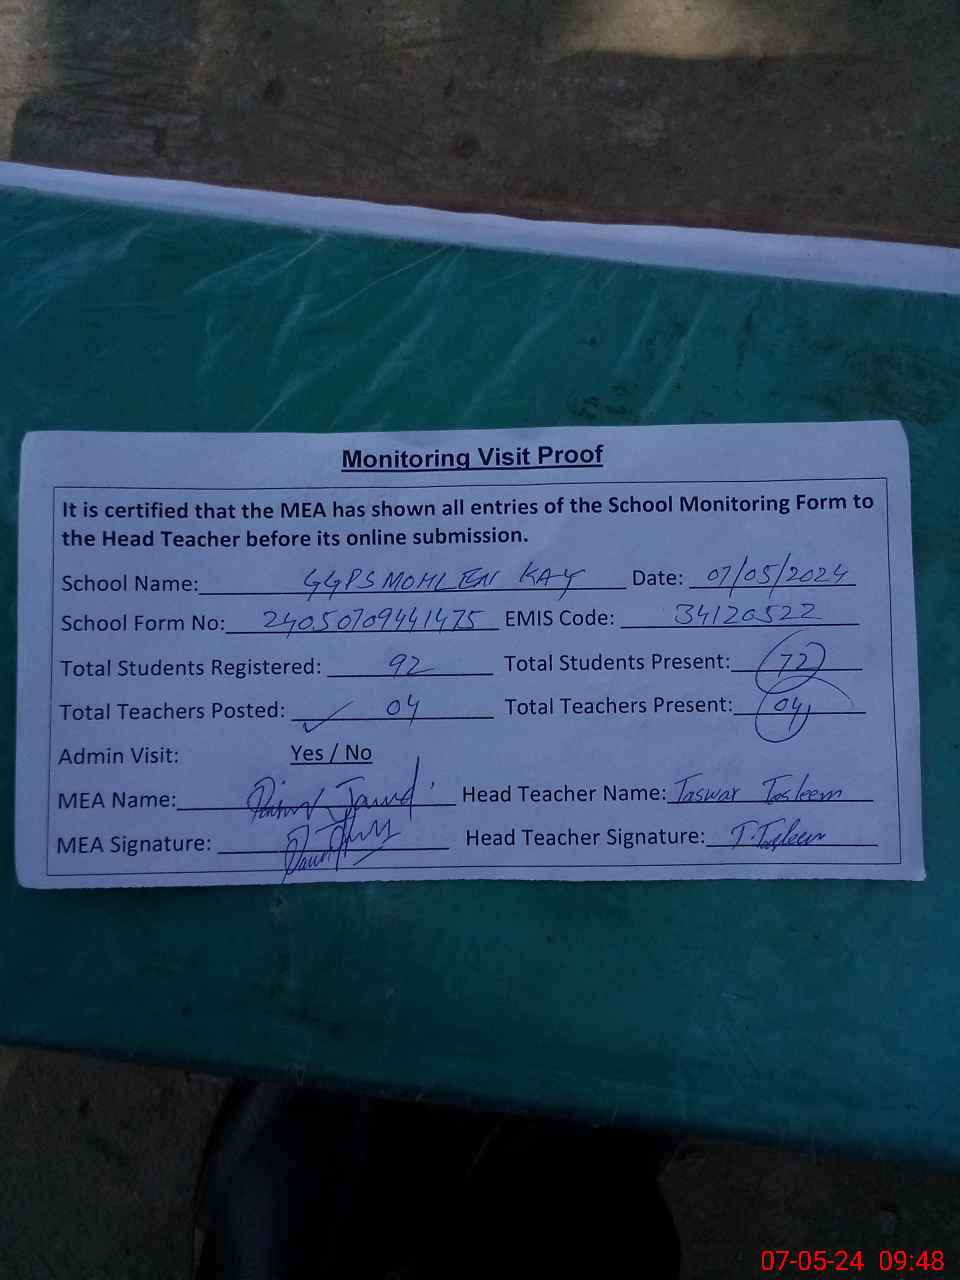 Monitoring Visit Proof
It is certified that the MEA has shown all entries of the School Monitoring Form to
the Head Teacher before its online submission.
School Name: GGPS MOHLEN KAY Date: 07/05/2024
School Form No: 24050709441475 EMIS Code: 34120522
Total Students Registered: 92 Total Students Present: 72
Total Teachers Posted: 04 Total Teachers Present: 04
Admin Visit: Yes / No
MEA Name: Head Teacher Name: Taswar Tasleem
MEA Signature: Head Teacher Signature: T. Tasleem
07-05-24 09:48